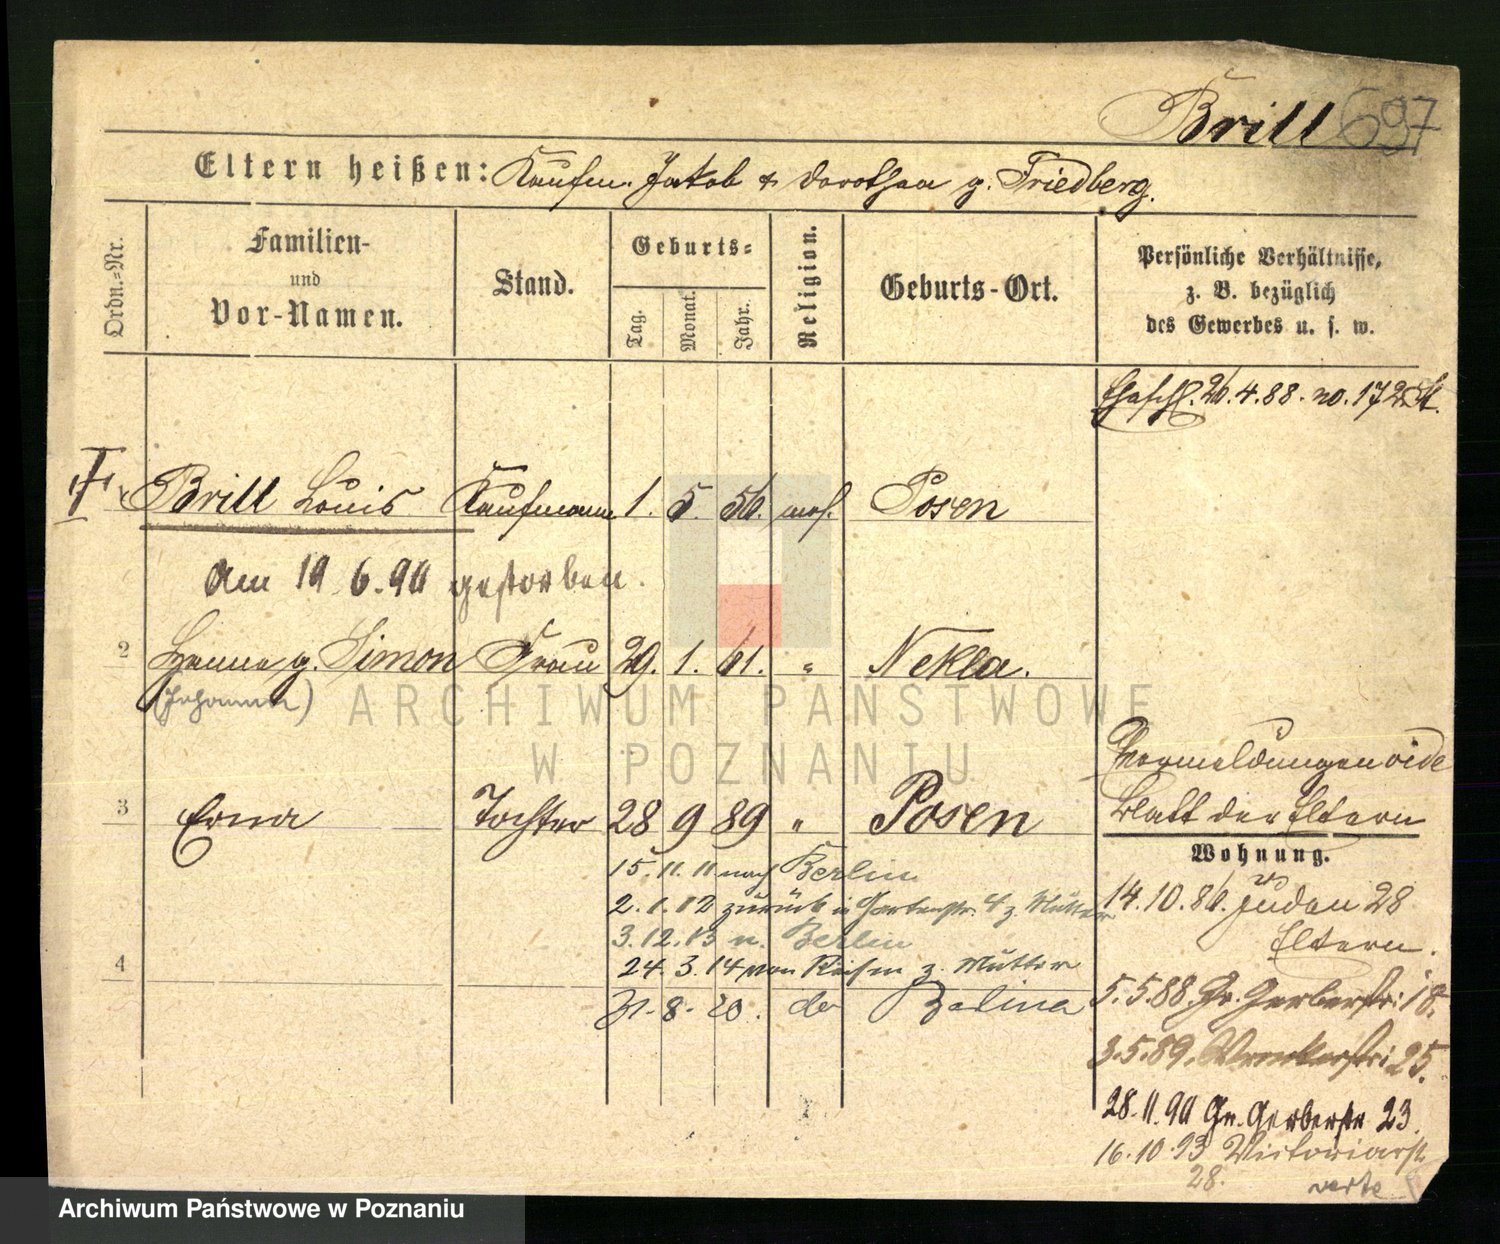 Brill 697
Eltern heißen: Kaufm. Jakob & Dorothea g. Friedberg.
Ordn.-Nr.
Familien-
und
Vor-Namen.
Stand.
Geburts-
Tag.
Monat.
Jahr.
Religion.
Geburts-Ort.
Persönliche Verhältnisse,
z. B. bezüglich
des Gewerbes u. s. w.
4.88. no. 172
Brill Louis Kaufmann 1. 5. 56. mos. Posen
Am 19 6.90 gestorben.
2 Hanne g. Simon Frau 29. 1. 61. " Nekla.
(Johanna)
ARCHIWUM PAŃSTWOWE
W POZNANIU
vide
Blatt der Eltern
3 Erna Tochter 28 9 89 " Posen
Wohnung.
15. 11. 11 nach Berlin
2. 1. 12 zurück Gartenstr. 4 z. Mutter
14. 10. 86. Juden 28
Eltern.
3. 12. 13 n. Berlin
4
24. 3. 14 von Reisen z. Mutter
5.5.88. Gr. Gerberstr: 18.
8. 20.
3.5.89. 25.
28. 11. 90 Gr. Gerberstr 23.
16. 10. 93 Victoriastr
28.
verte
Archiwum Państwowe w Poznaniu